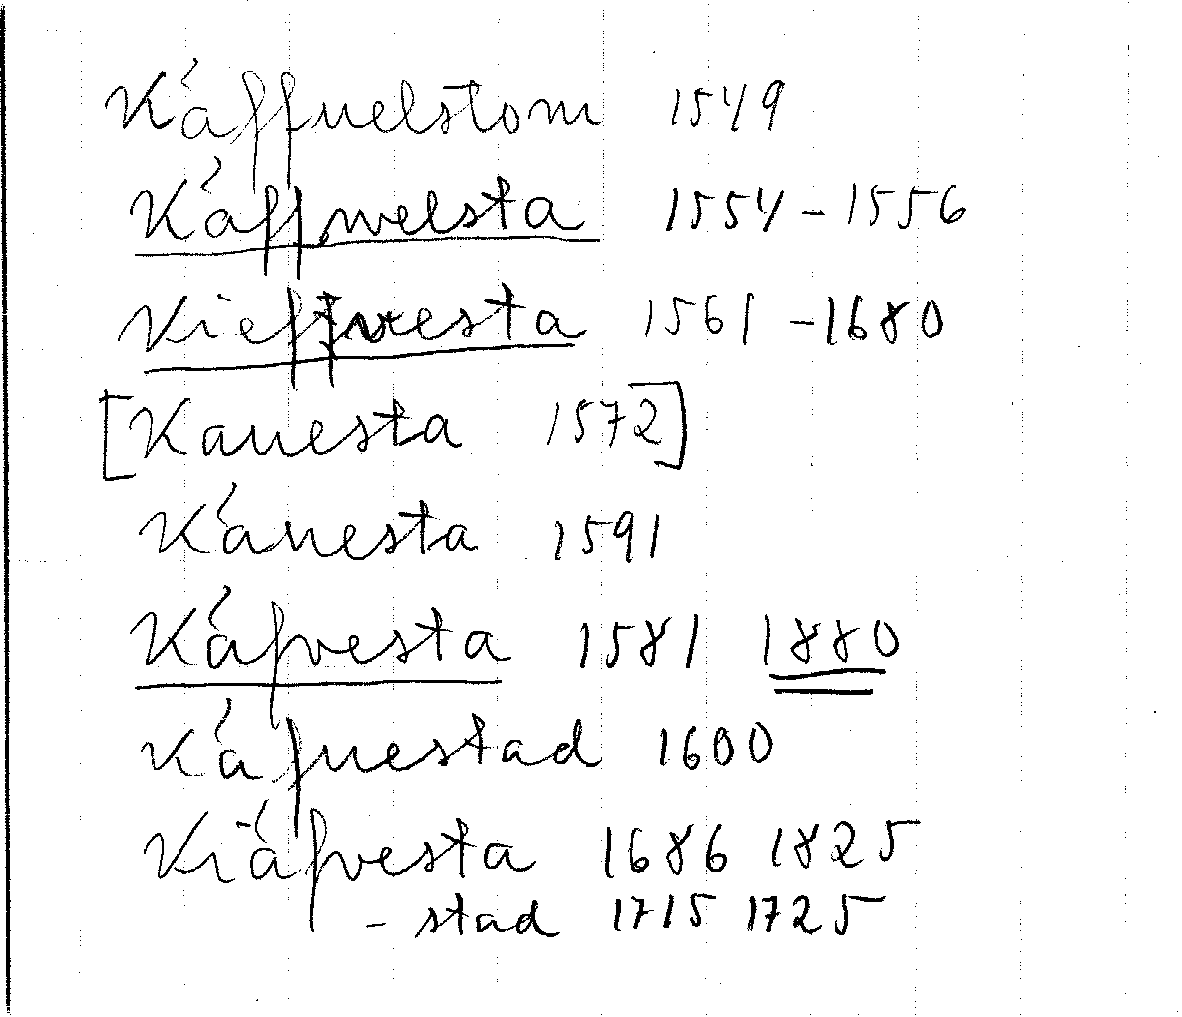 Käffuelstom 1549
Käffwelsta 1554-1556
Kieffvesta 1561-1680
[Kauesta 1572]
Käuesta 1591
Käfvesta 1581 1880
Käfuestad 1600
Kiäfvesta 1686 1825
-stad 1715 1725